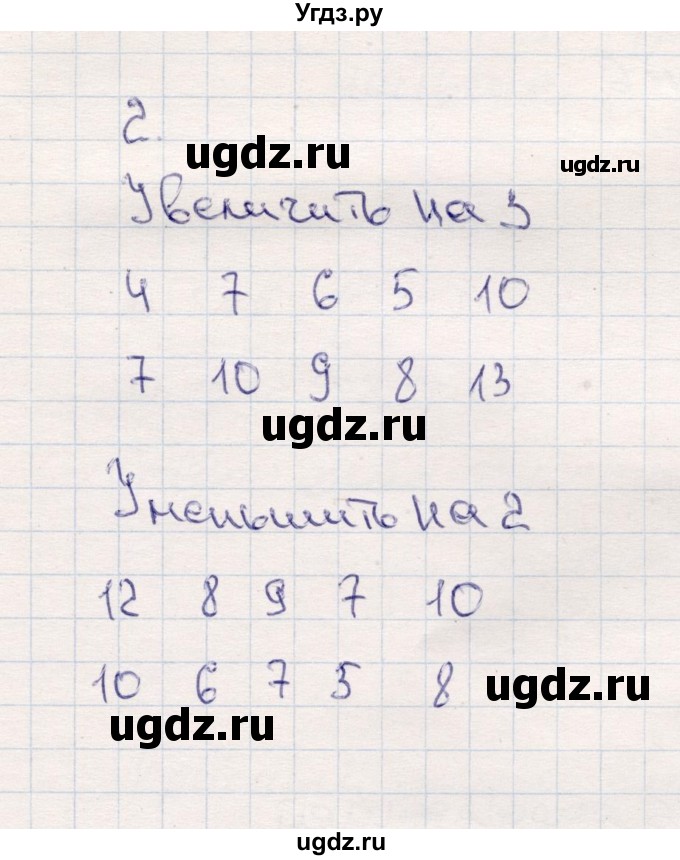 Угдз.ру
2.
ugdz.ru
ugdz.ru
Увеличить на 3
4 7 6 5 10
7 10 9 8 13
ugdz.ru
Уменьшить на 2
12 8 9 7 10
10 6 7 5 8
ugdz.ru
ugdz.ru
ugdz.ru